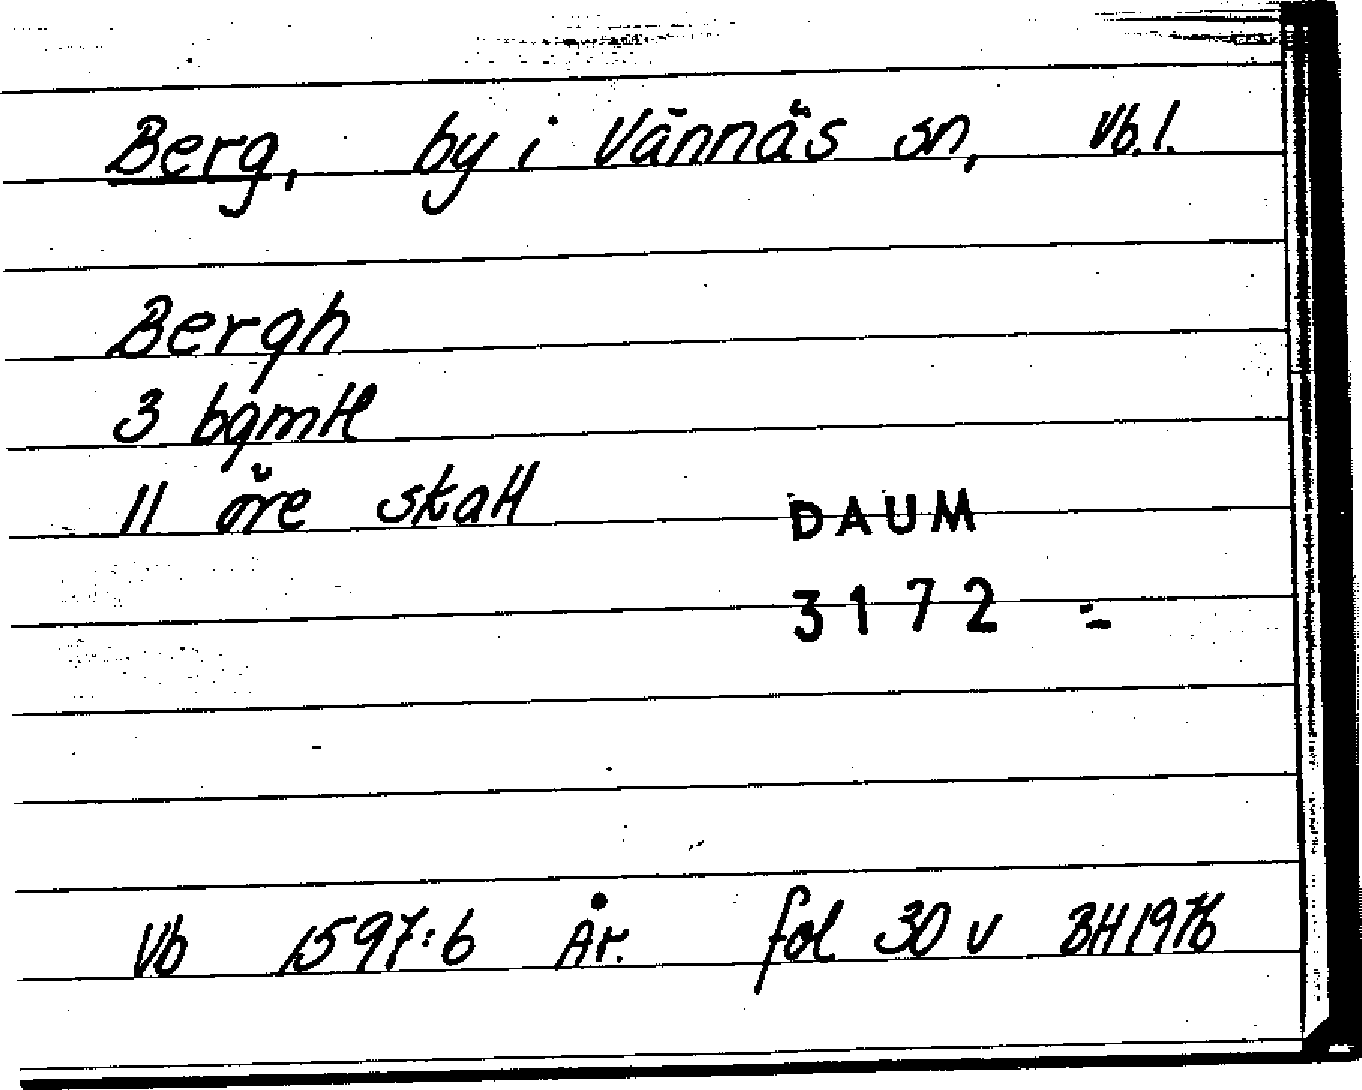 Berg, by i Vännäs sn, Vb.l.
Bergh
3 bgmtl
11 öre skatt
DAUM
3172
Vb 1597:6 År. fol 30 v BH 1976